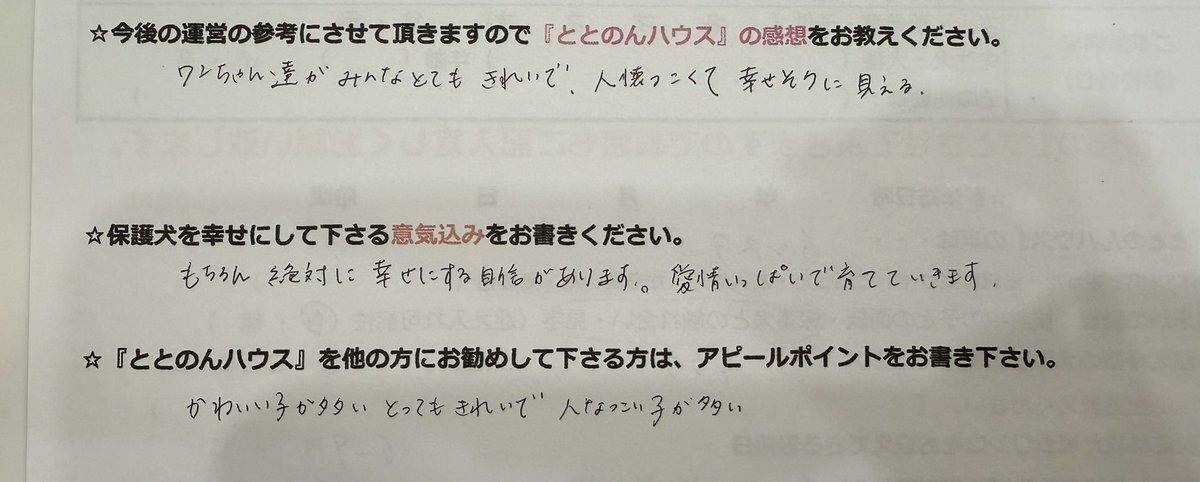 ☆今後の運営の参考にさせて頂きますので『ととのんハウス』の感想をお教えください。
ワンちゃん達がみんなとてもきれいで、人懐っこくて幸せそうに見える。
☆保護犬を幸せにして下さる意気込みをお書きください。
もちろん絶対に幸せにする自信があります。愛情いっぱいで育てていきます。
☆『ととのんハウス』を他の方にお勧めして下さる方は、アピールポイントをお書き下さい。
かわいい子が多い とってもきれいで 人なつこい子が多い